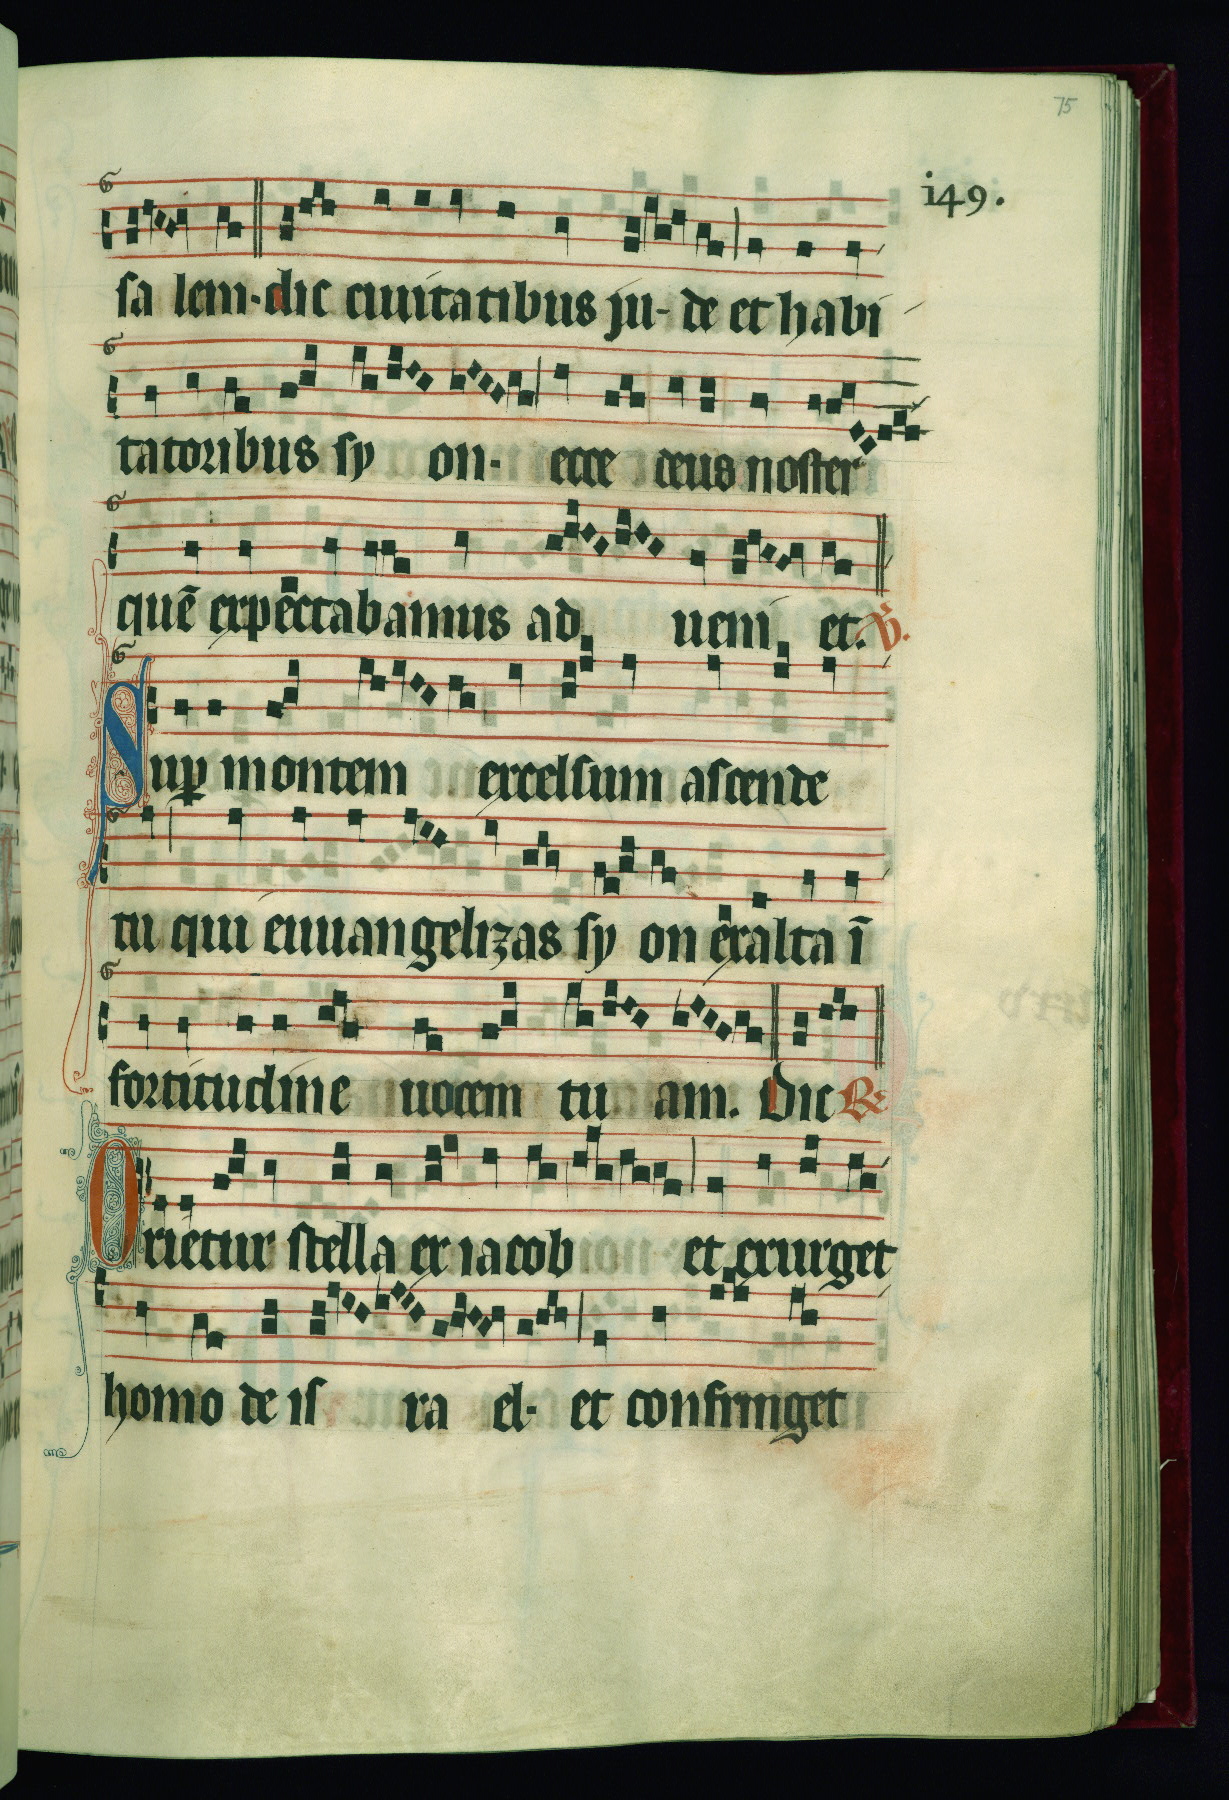 75
i49.
sa lem·dic ciuitatibus ju- de et habi
tatoribus sy on· ecce deus noster
quē expectabamus ad ueni et. V.
Sup montem excelsum ascende
tu qui euuangelizas sy on exalta ī
fortitudine uocem tu am. Dic R
Orietur stella ex iacob et exurget
homo de is ra el· et confringet